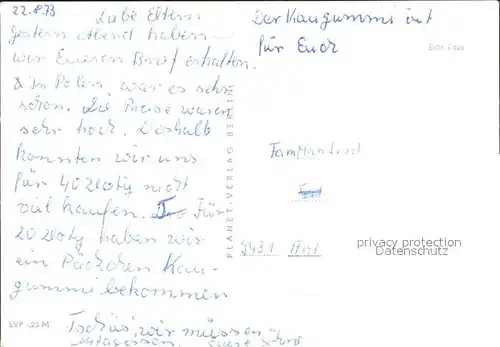 22.8.73
Liebe Eltern
gestern Abend haben
wir Eueren Brief erhalten.
In Polen, war es sehr
schön. Die Preise waren
sehr hoch. Deshalb
konnten wir uns
für 40 Zloty nicht
viel kaufen. Für
20 Zloty haben wir
ein Päckchen Kau-
gummi bekommen
Tschüs, wir müssen
Mitagessen.
Der Kaugummi ist
für Euch
Echt Foto
PLANET-VERLAG BERLIN
Fam
3431
privacy protection
Datenschutz
EVP -,25 M